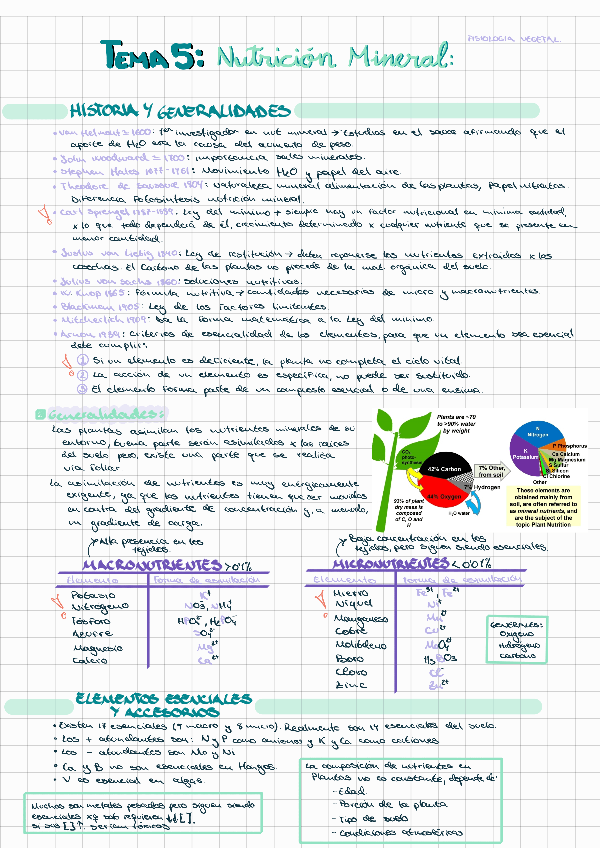 FISIOLOGIA VEGETAL.
TEMA 5: Nutrición Mineral:
HISTORIA Y GENERALIDADES
• Van Helmont ≥ 1600: 1er investigador en nut mineral → Estudios en el sauce afirmando que el
aporte de H2O era la causa del aumento de peso.
• John Woodward ≥ 1700: importancia sales minerales.
• Stephen Hales 1677-1761: Movimiento H2O y papel del aire.
• Theodore de Saussure 1804: Naturaleza mineral alimentación de las plantas, Papel nitratos.
Diferencia Fotosíntesis nutrición mineral.
• Carl Sprengel 1787-1859: Ley del mínimo → siempre hay un factor nutricional en mínima cantidad,
x lo que todo dependerá de él, crecimiento determinado x cualquier nutriente que se presente en
menor cantidad.
• Justus von Liebig 1840: Ley de restitución → deben reponerse los nutrientes extraídos x las
cosechas. El Carbono de las plantas no procede de la mat. orgánica del suelo.
• Julius von Sachs 1860: soluciones nutritivas.
• W. Knop 1865: Fórmula nutritiva → cantidades necesarias de micro y macronutrientes.
• Blackman 1905: Ley de los factores limitantes.
• Mitcherlich 1909: Da la forma matemática a la Ley del mínimo
• Arnon 1939: Criterios de esencialidad de los elementos, para que un elemento sea esencial
debe cumplir:
1 Si un elemento es deficiente, la planta no completa el ciclo vital
2 La acción de un elemento es específica, no puede ser sustituido.
3 El elemento forma parte de un compuesto esencial o de una enzima.
Generalidades:
Las plantas asimilan los nutrientes minerales de su
entorno, buena parte serán asimilados x las raíces
del suelo pero, existe una parte que se realiza
via foliar
La asimilación de nutrientes es muy energéticamente
exigente, ya que los nutrientes tienen que ser movidos
en contra del gradiente de concentración y, a menudo,
un gradiente de carga.
Plants are ~70
to >90% water
by weight
CO2
photo-
synthesis
42% Carbon
44% Oxygen
7% Other,
from soil
7% Hydrogen
H2O water
93% of plant
dry mass is
composed
of C, O and
H
N
Nitrogen
K
Potassium
P Phosphorus
Ca Calcium
Mg Magnesium
S Sulfur
Si Silicon
Cl Chlorine
Other
These elements are
obtained mainly from
soil, are often referred to
as mineral nutrients, and
are the subject of the
topic Plant Nutrition
Alta presencia en los
tejidos.
MACRONUTRIENTES >0'1%
Elemento Forma de asimilación
Potasio K+
Nitrógeno NO3-, NH4+
Fósforo HPO4 2-, H2PO4-
Azufre SO4 2-
Magnesio Mg2+
Calcio Ca2+
Baja concentración en los
tejidos, pero siguen siendo esenciales.
MICRONUTRIENTES <0'01%
Elemento Forma de asimilación
Hierro Fe3+, Fe2+
Níquel Ni+
Manganeso Mn2+
Cobre Cu2+
Molibdeno MoO4 2-
Boro H3BO3
Cloro Cl-
Zinc Zn2+
GENERALES:
Oxígeno
Hidrógeno
Carbono
ELEMENTOS ESENCIALES
Y ACCESORIOS
• Existen 17 esenciales (9 macro y 8 micro). Realmente son 14 esenciales del suelo.
• Los + abundantes son: N y P como aniones y K y Ca como cationes
• Los - abundantes son Mo y Ni
• Ca y B no son esenciales en Hongos.
• V es esencial en algas.
Muchos son metales pesados pero siguen siendo
esenciales xq solo requieren ↓↓[ ].
si sus [ ]↑ serían tóxicos
La composición de nutrientes en
Plantas no es constante, depende de:
- Edad.
- Porción de la planta
- Tipo de suelo
- Condiciones atmosféricas